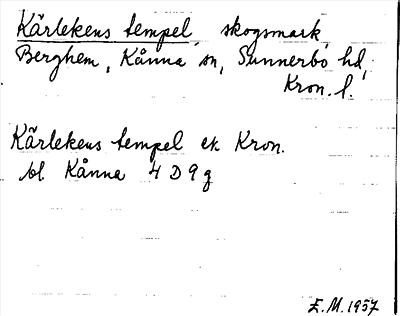 Kärlekens tempel, skogsmark,
Berghem, Kånna sn, Sunnerbo hd,
Kron. l.
Kärlekens tempel ek Kron.
bl Kånna 4 D 9 g
E.M. 1957